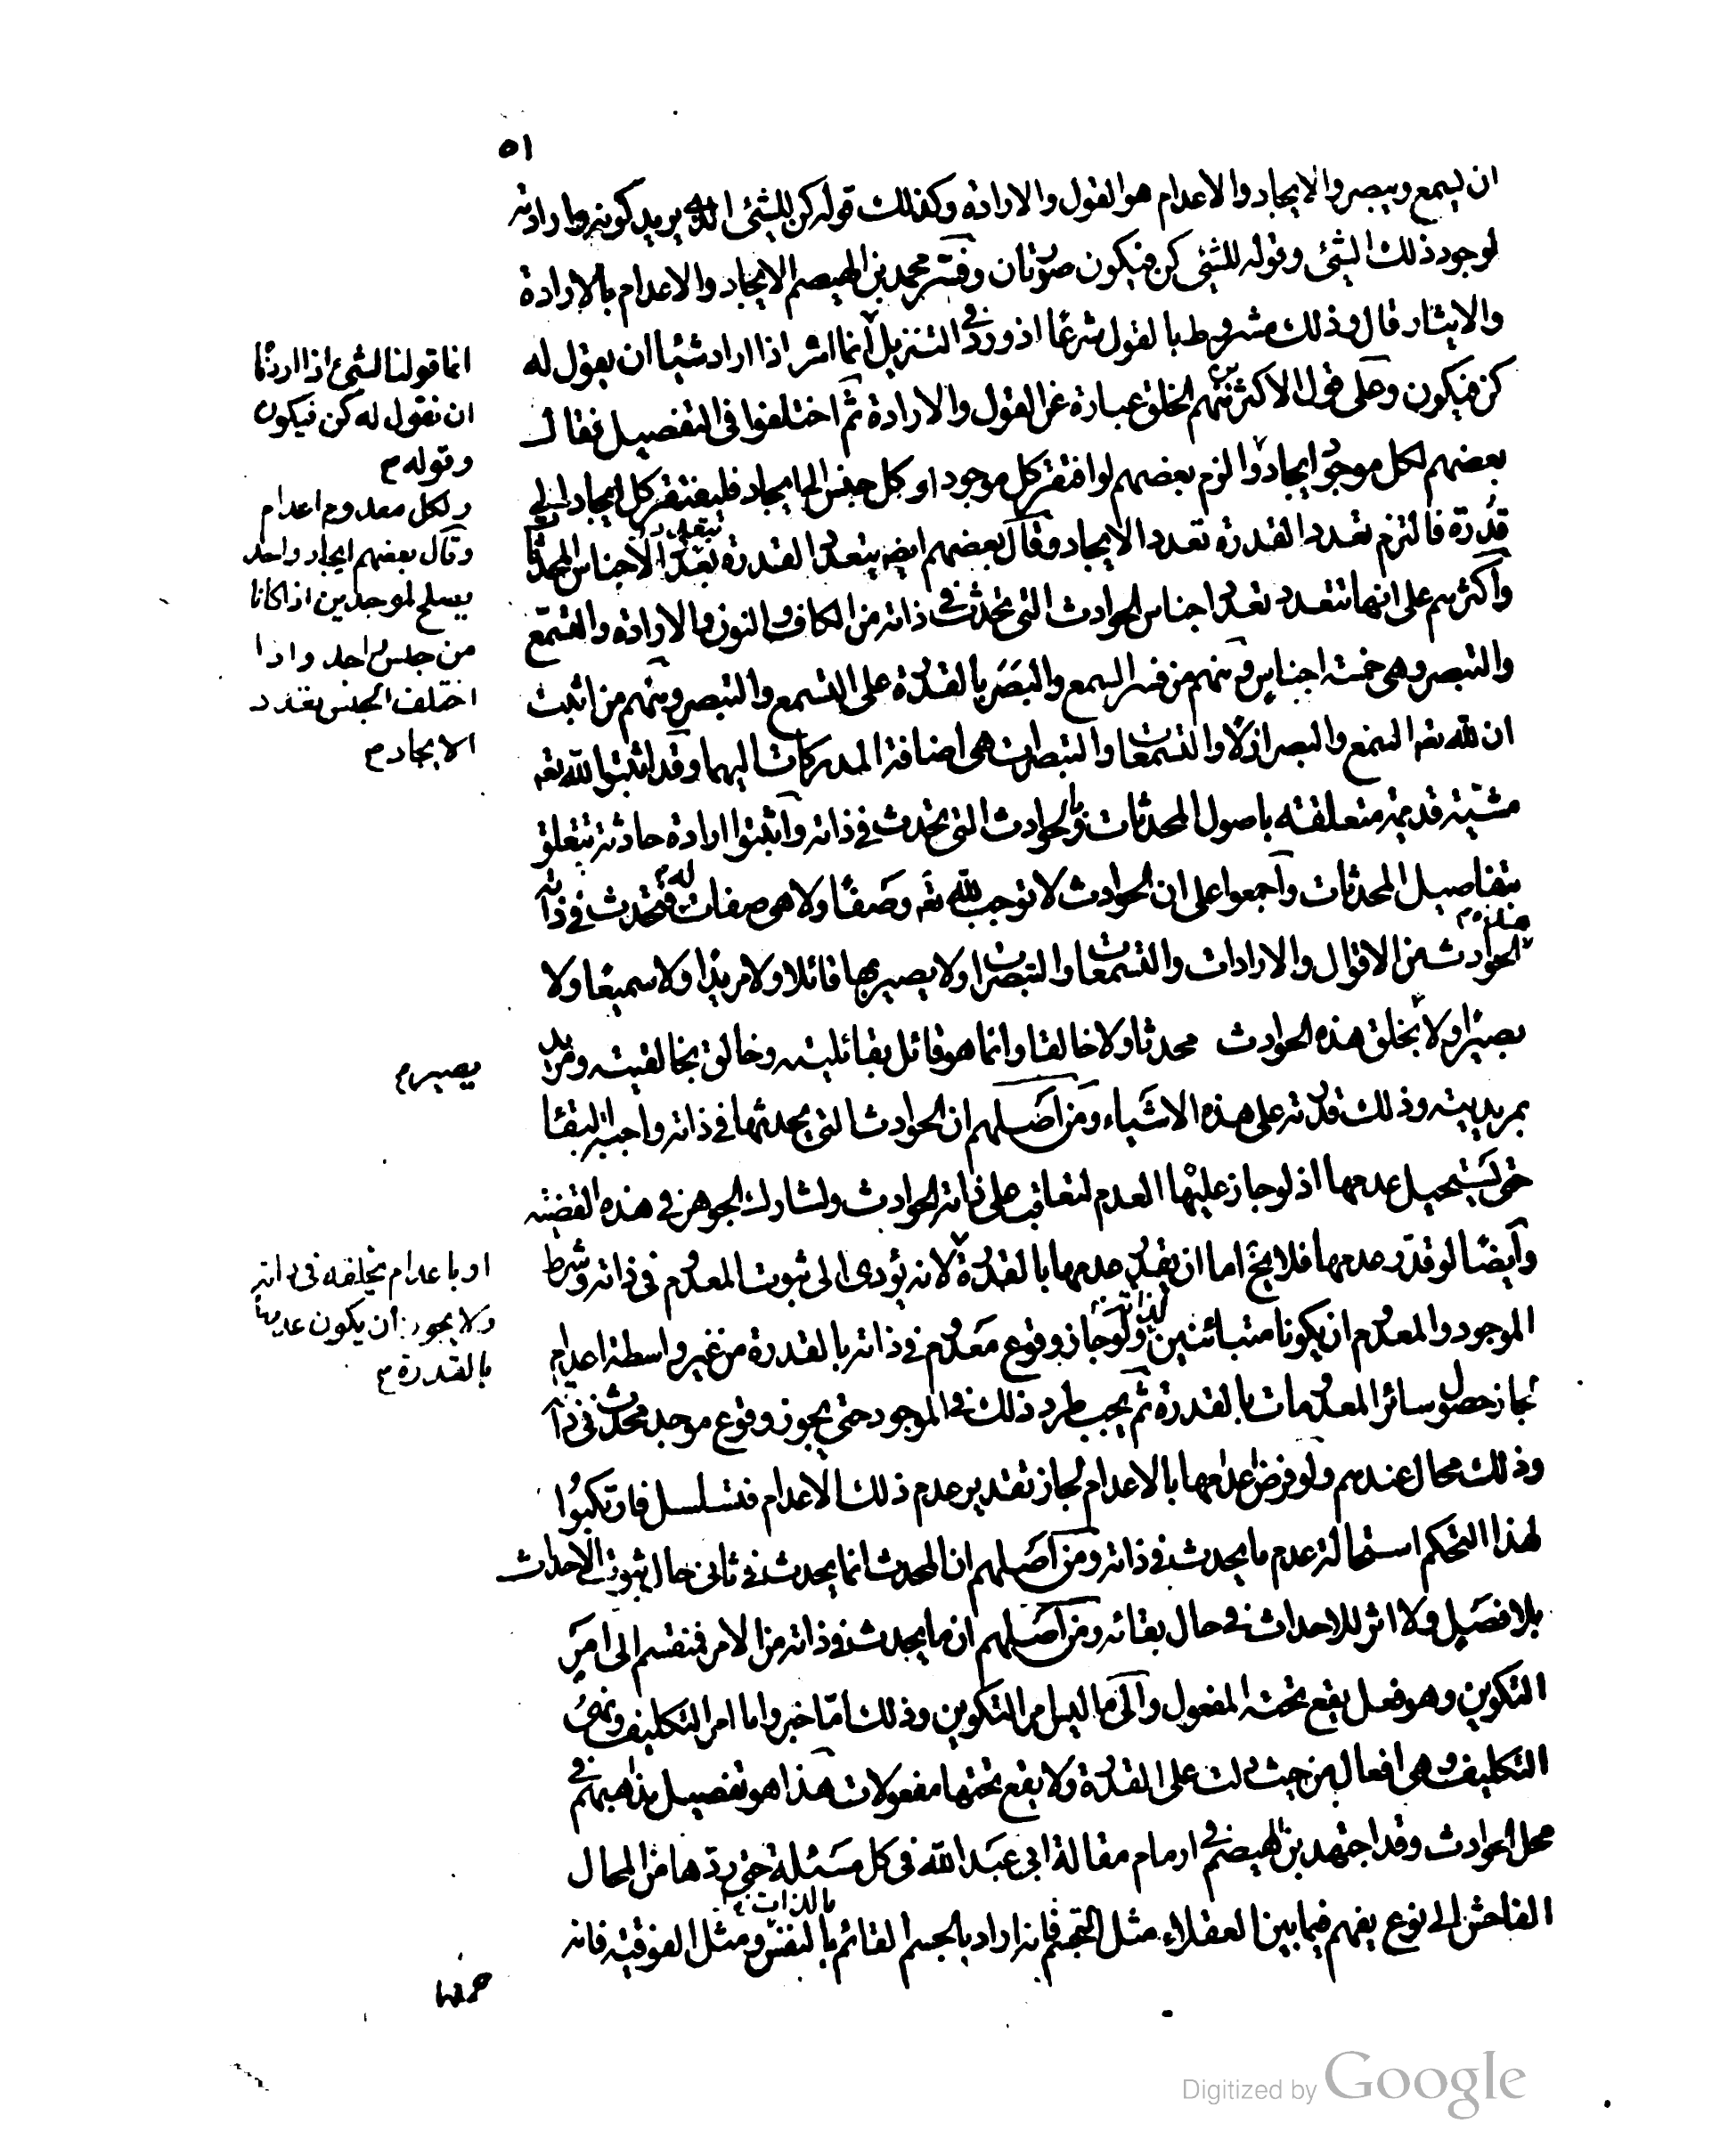 ٥١
ان يسمع ويبصر والايجاد والاعدام هو القول والارادة وكذلك قوله كن للشئ الذى يريد كونه وارادته
لوجود ذلك الشئ وقوله للشئ كن فيكون صوتان وفسر محمد بن الهيصم الايجاد والاعدام بالارادة
والايثار قال وذلك مشروط بالقول شرعًا اذ ورد فى التنزيل انما امره اذا اراد شيئا ان يقول له
كن فيكون وعلى قول الاكثرين منهم الخلق عبارة عن القول والارادة ثم اختلفوا فى التفصيل فقال
بعضهم لكل موجود ايجاد والزم بعضهم لو افتقر كل موجود او كل جنس الى ايجاد فليفتقر كل ايجاد الى
قدرة فالتزم تعدد القدرة بتعدد الايجاد وقال بعضهم ايضا يتعدد القدرة بعدد الاجناس المحدثات
واكثرهم على انها تتعدد بعدد اجناس الحوادث التى تحدث فى ذاته من الكاف والنون والارادة والتسمع
والتبصر وهى خمسة اجناس ومنهم من فسر السمع والبصر بالقدرة على التسمع والتبصر ومنهم من اثبت
ان لله تعه السمع والبصر ازلا والتسمعات والتبصرات هى اضافة المدركات اليهما وقد اثبتوا لله تعه
مشيئة قديمة متعلقة باصول المحدثات وبالحوادث التى تحدث فى ذاته واثبتوا ارادة حادثة تتعلق
بتفاصيل المحدثات واجمعوا على ان الحوادث لا توجب لله تعه وصفًا ولا هى صفات له فتحدث فى ذاته
هذه الحوادث من الاقوال والارادات والتسمعات والتبصرات ولا يصير بها قائلا ولا مريدا ولا سميعًا ولا
بصيرًا ولا بخلق هذه الحوادث محدثا ولا خالقا وانما هو قائل بقائليته وخالق بخالقيته ومريد
بمريديته وذلك قدرته على هذه الاشياء ومن اصلهم ان الحوادث التى يحدثها فى ذاته واجبة البقا
حتى يستحيل عدمها اذ لو جاز عليها العدم لتعاقب على ذاته الحوادث ولشارك الجوهر فى هذه القضية
وايضًا لو قدّر عدمها فلا يخ اما ان يقدر عدمها بالقدرة لانه يؤدى الى ثبوت المعدوم فى ذاته وشرط
الموجود والمعدوم ان يكونا متباينين لذاته ولو جاز وقوع معدوم فى ذاته بالقدرة من غير واسطة اعدام
لجاز حصول سائر المعدومات بالقدرة ثم يجب طرد ذلك فى الموجود حتى يجوز وقوع موجد محدث فى ذاته
وذلك محال عندهم ولو فرض اعدامها بالاعدام لجاز تقدير عدم ذلك الاعدام فتسلسل فارتكبوا
لهذا التحكم استحالة عدم ما يحدث فى ذاته ومن اصلهم ان المحدث انما يحدث فى ثانى حال ثبوت الاحداث
بلا فصل ولا اثر للاحداث فى حال بقائه ومن اصلهم ان ما يحدث فى ذاته من الامر فنقسم الى امر
التكوين وهو فعل يقع تحته المفعول والى ما ليس امر التكوين وذلك امّا خبر واما امر التكليف ونهى
التكليف وهى افعال من حيث دلت على القدرة ولا يقع تحتها مفعولات هذا هو تفصيل مذاهبهم فى
محل الحوادث وقد اجتهد بن الهيصم فى ارمام مقالة ابى عبد الله فى كل مسئلة حتى ردها من المحال
الفاحش الى نوع يفهم فيما بين العقلاء مثل التجسم فانه اراد بالجسم القائم بالذات بالنفس ومثل الفوقية فانه
انما قولنا لشئ اذا اردنا
ان نقول له كن فيكون
وقوله م
ولكل معدوم اعدام
وقال بعضهم ايجاد واحد
يصلح لموجدين اذا كانا
من جنس واحد واذا
اختلف الجنس تعدد
الايجاد م
يصير م
او باعدام يخلقه فى ذاته
ولا يجوز ان يكون عدمها
بالقدرة م
حملها
Digitized by Google